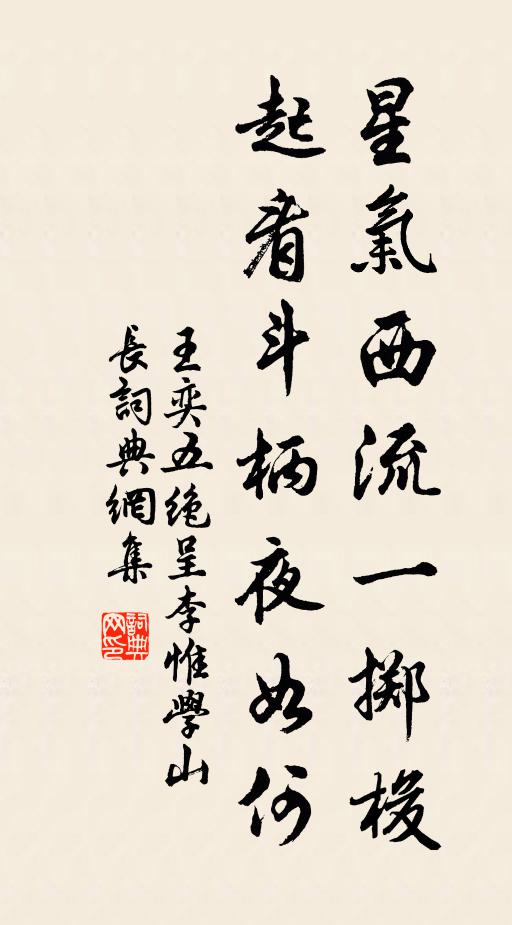 星氣西流一擲梭
起看斗柄夜如何
王奕五絶呈李惟學山
長詞典網集
詞典网印